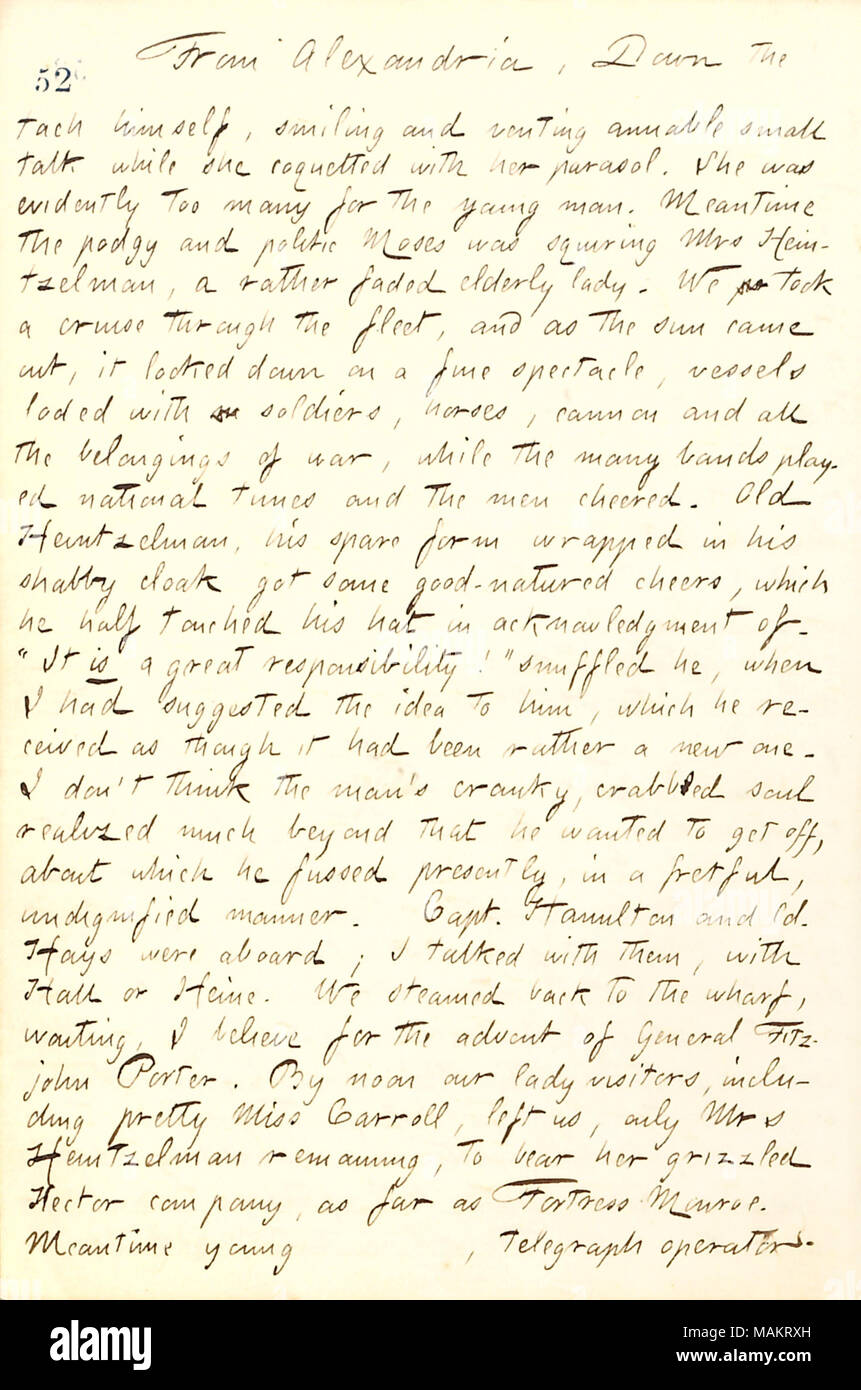 52
From Alexandria, Down the
tach himself, smiling and venting amiable small
talk while she coquetted with her parasol. She was
evidently too many for the young man. Meantime
the podgy and politic Moses was squiring Mrs Hein-
tzelman, a rather faded elderly lady. We took
a cruise through the fleet, and as the sun came
out, it looked down on a fine spectacle, vessels
loded with soldiers, horses, cannon and all
the belongings of war, while the many bands play-
ed national tunes and the men cheered. Old
Heintzelman, his spare form wrapped in his
shabby cloak got some good-natured cheers, which
he half touched his hat in acknowledgment of.
"It is a great responsibility!" snuffled he, when
I had suggested the idea to him, which he re-
ceived as though it had been rather a new one.
I don't think the man's cranky, crabbed soul
realized much beyond that he wanted to get off,
about which he fussed presently, in a fretful,
undignified manner. Capt. Hamilton and Ed.
Hays were aboard; I talked with them, with
Hall or Heine. We steamed back to the wharf,
waiting, I believe for the advent of General Fitz-
john Porter. By noon our lady visitors, inclu-
ding pretty Miss Carroll, left us, only Mrs
Heintzelman remaining, to bear her grizzled
Hector company, as far as Fortress Monroe.
Meantime young , telegraph operator
alamy
Image ID: MAKRXH
www.alamy.com